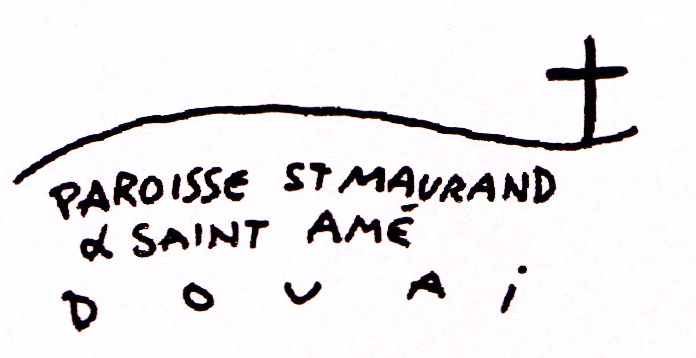 PAROISSE ST MAURAND
& SAINT AMÉ
DOUAi